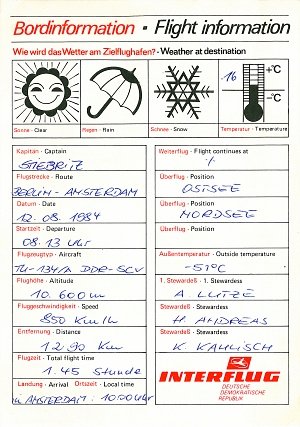 Bordinformation · Flight information
Wie wird das Wetter am Zielflughafen? · Weather at destination
16 +°C
-°C
Sonne · Clear
Regen · Rain
Schnee · Snow
Temperatur · Temperature
Kapitän · Captain
STIEBRITZ
Flugstrecke · Route
BERLIN - AMSTERDAM
Datum · Date
12.08.1984
Startzeit · Departure
08.13 Uhr
Flugzeugtyp · Aircraft
TU-134/A DDR-SCV
Flughöhe · Altitude
10.600 m
Fluggeschwindigkeit · Speed
850 Km/h
Entfernung · Distance
1290 Km
Flugzeit · Total flight time
1.45 Stunde
Landung · Arrival Ortszeit · Local time
in AMSTERDAM: 10.00 Uhr
Weiterflug · Flight continues at
Überflug · Position
OSTSEE
Überflug · Position
NORDSEE
Überflug · Position
Außentemperatur · Outside temperature
-51°C
1. Stewardeß · 1. Stewardess
A. LUTZE
Stewardeß · Stewardess
H. ANDREAS
Stewardeß · Stewardess
K. KALLISCH
INTERFLUG
DEUTSCHE
DEMOKRATISCHE
REPUBLIK